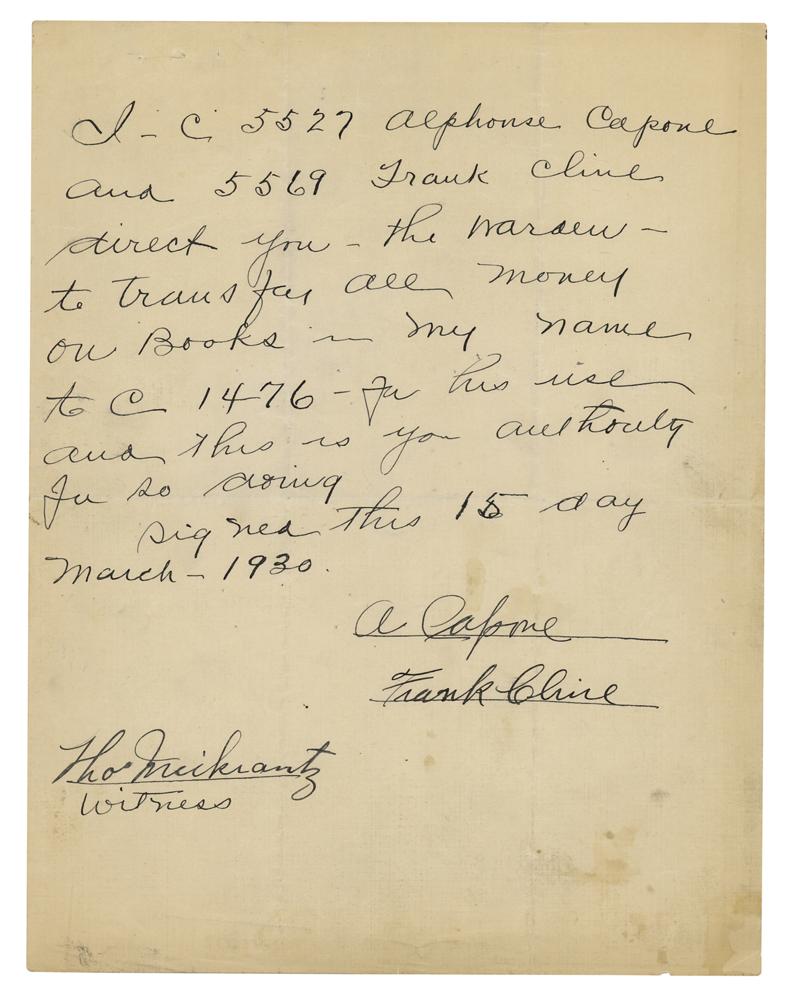 I - C 5527 Alphonse Capone
and 5569 Frank Cline
direct you - the Warden -
to transfar all money
on Books in my name
to C 1476 - for his use
and this is you authority
for so doing
signed this 15 day
March - 1930.
A Capone
Frank Cline
Tho Meikrantz
Witness